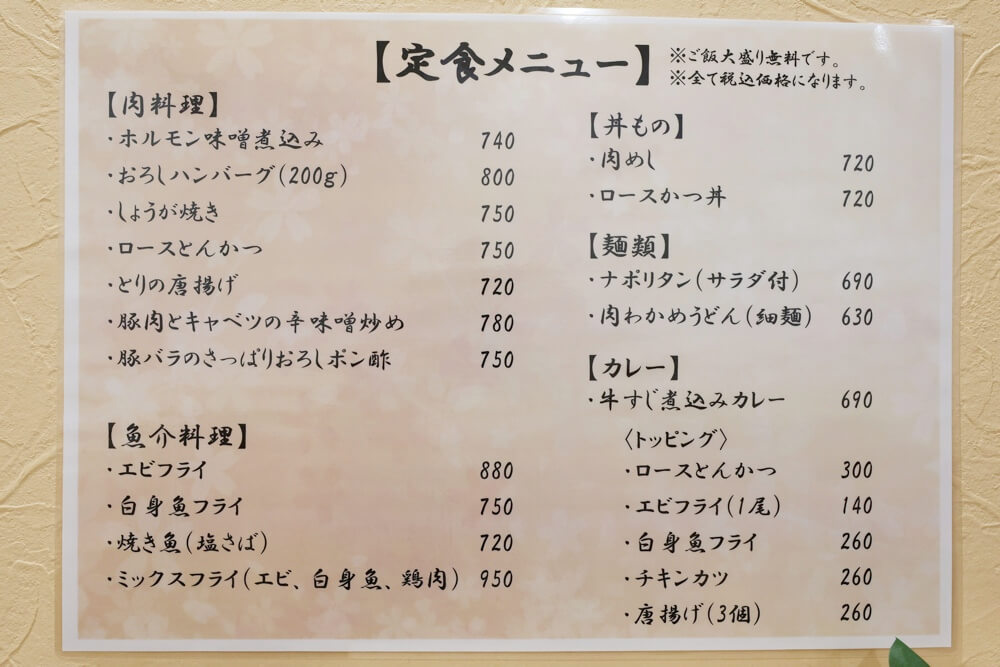 【定食メニュー】
※ご飯大盛り無料です。
※全て税込価格になります。
【肉料理】
・ホルモン味噌煮込み 740
・おろしハンバーグ(200g) 800
・しょうが焼き 750
・ロースとんかつ 750
・とりの唐揚げ 720
・豚肉とキャベツの辛味噌炒め 780
・豚バラのさっぱりおろしポン酢 750
【魚介料理】
・エビフライ 880
・白身魚フライ 750
・焼き魚(塩さば) 720
・ミックスフライ(エビ、白身魚、鶏肉) 950
【丼もの】
・肉めし 720
・ロースかつ丼 720
【麺類】
・ナポリタン(サラダ付) 690
・肉わかめうどん(細麺) 630
【カレー】
・牛すじ煮込みカレー 690
〈トッピング〉
・ロースとんかつ 300
・エビフライ(1尾) 140
・白身魚フライ 260
・チキンカツ 260
・唐揚げ(3個) 260